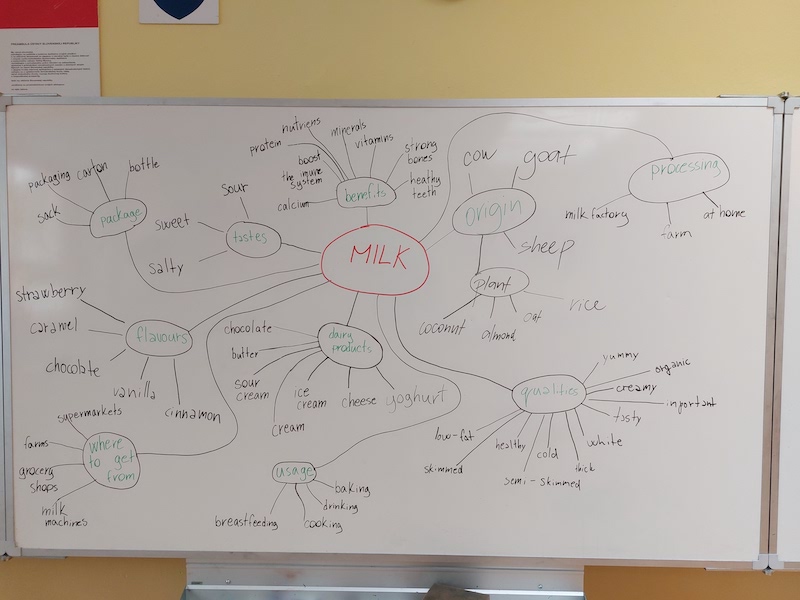 MILK
package
sack
packaging
carton
bottle
tastes
sour
sweet
salty
benefits
calcium
boost
the imune
system
protein
nutriens
minerals
vitamins
strong
bones
heathy
teeth
origin
cow
goat
sheep
plant
coconut
almond
oat
rice
processing
milk factory
farm
at home
flavours
strawberry
caramel
chocolate
vanilla
cinnamon
dairy
products
chocolate
butter
sour
cream
ice
cream
cream
cheese
yoghurt
qualities
yummy
organic
creamy
inportant
tasty
white
thick
cold
semi-skimmed
healthy
low-fat
skimmed
where
to get
from
supermarkets
farms
grocery
shops
milk
machines
usage
breastfeeding
cooking
drinking
baking